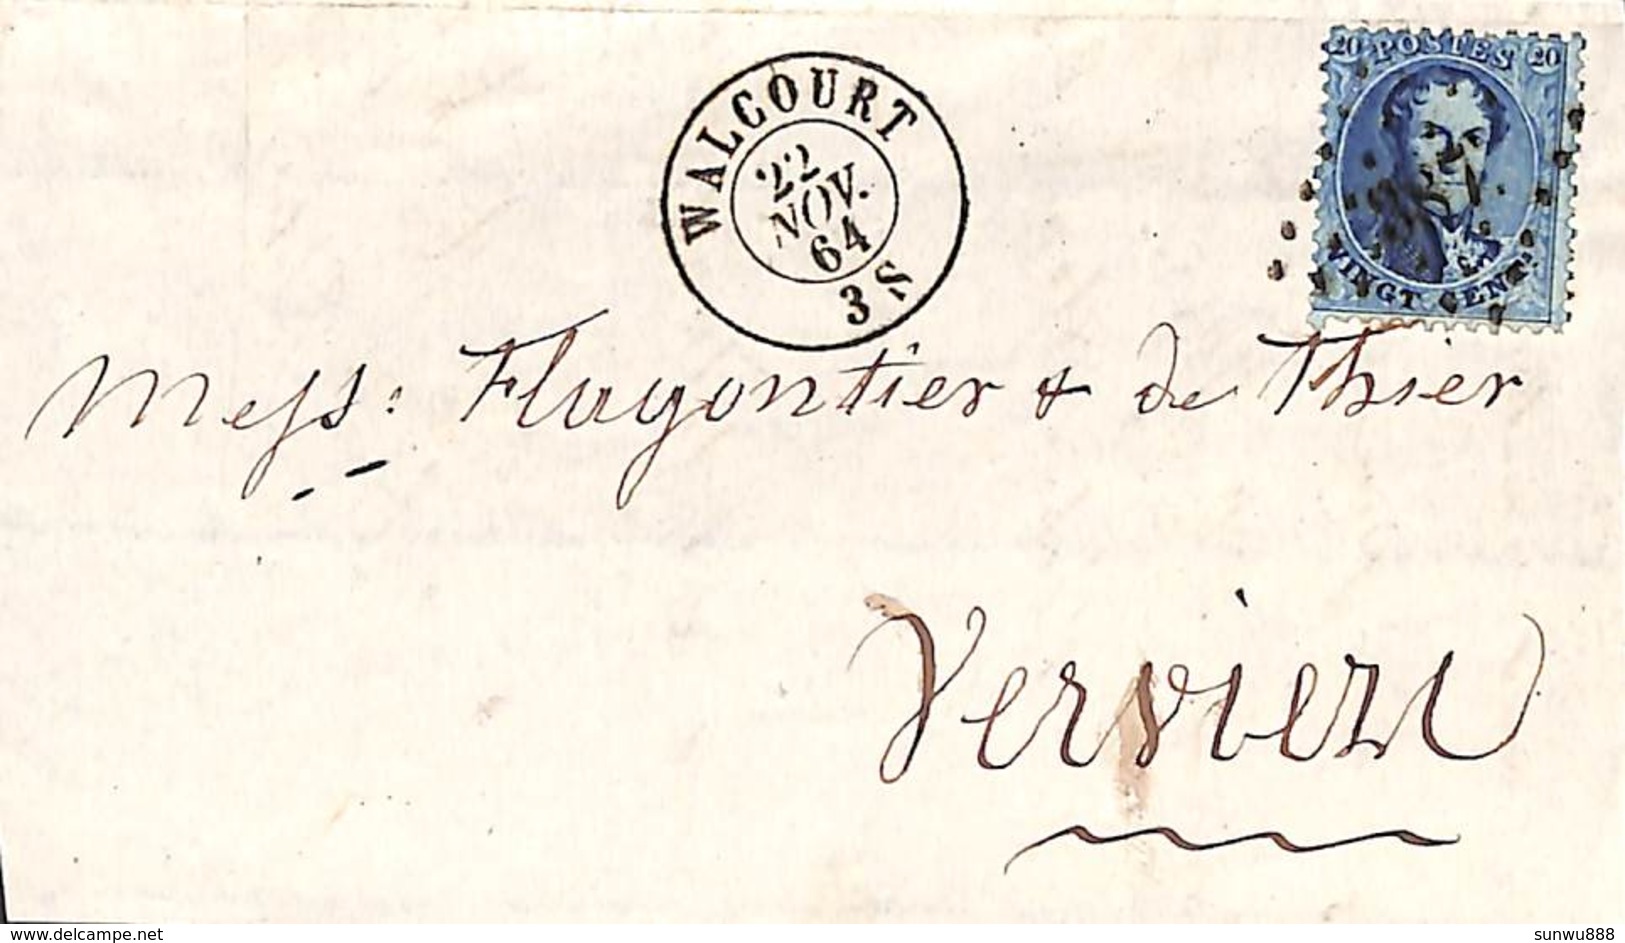 WALCOURT
22
NOV.
64
3 S
20 POSTES 20
VINGT CENT.
Mess: Flagontier & de Thier
Verviers
delcampe.net
sunwu888